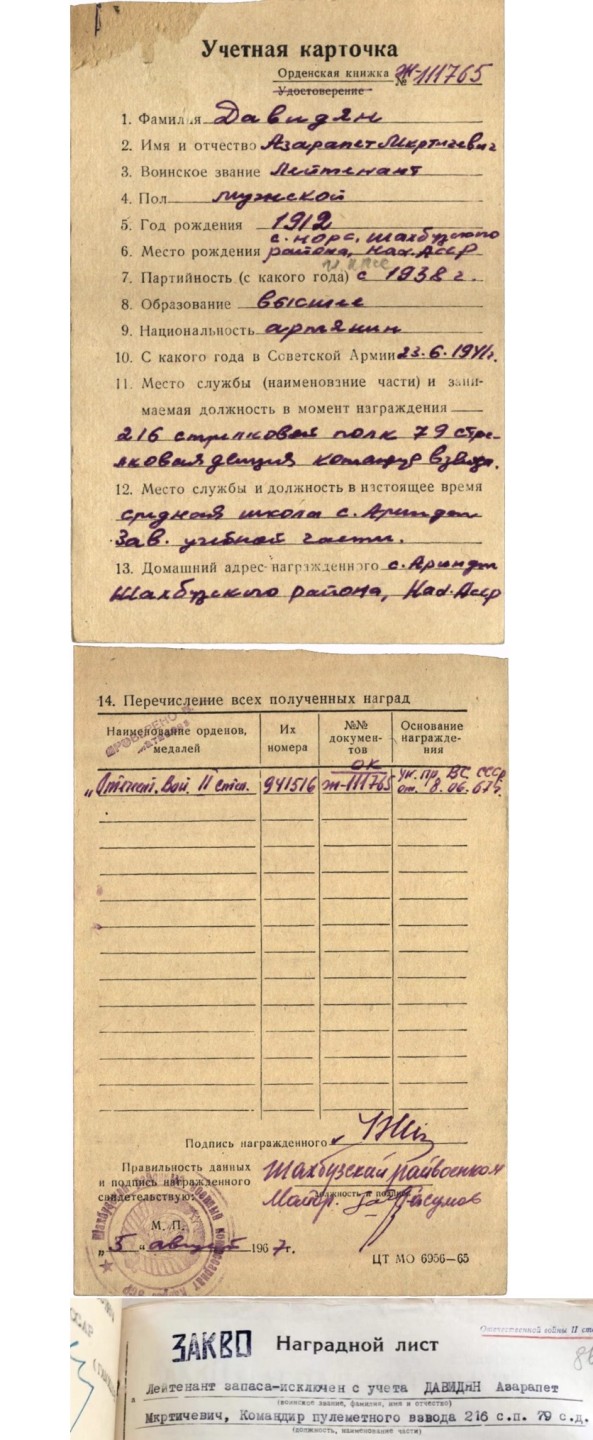 Учетная карточка
Орденская книжка № Ж-111765
Удостоверение
1. Фамилия Давидян
2. Имя и отчество Азарапет Мкртичевич
3. Воинское звание Лейтенант
4. Пол мужской
5. Год рождения 1912
с. Норс, Шахбузского
6. Место рождения района, Нах. Асср
7. Партийность (с какого года) с 1938 г.
8. Образование высшее
9. Национальность армянин
10. С какого года в Советской Армии 23.6.1941г.
11. Место службы (наименование части) и зани-
маемая должность в момент награждения
216 стрелковой полк 79 стре-
лковая девизия командир взвода.
12. Место службы и должность в настоящее время
средная школа с. Ариндж
Зав. учебной части.
13. Домашний адрес награжденного с. Ариндж
Шахбузского района, Нах. Асср
14. Перечисление всех полученных наград
Наименование орденов, медалей
Их номера
№№ документов
Основание награждения
ПРОВЕРЕНО
ОК
„Отечест. Вой. II степ. 941516 Ж-111765 Ук. пр. ВС СССР
от 8.06.67г.
Подпись награжденного
Правильность данных
и подпись награжденного
свидетельствую:
Шахбузский райвоенком
Майор Касумов
должность и подпись
М. П.
„5" август 1967г.
ЦТ МО 6956—65
ССАР
ЗАКВО
Наградной лист
Отечественной войны II сте
86
Лейтенант запаса-исключен с учета ДАВИДЯН Азарапет
(воинское звание, фамилия, имя и отчество)
Мкртичевич, Командир пулеметного взвода 216 с.п. 79 с.д.
(должность, наименование части)